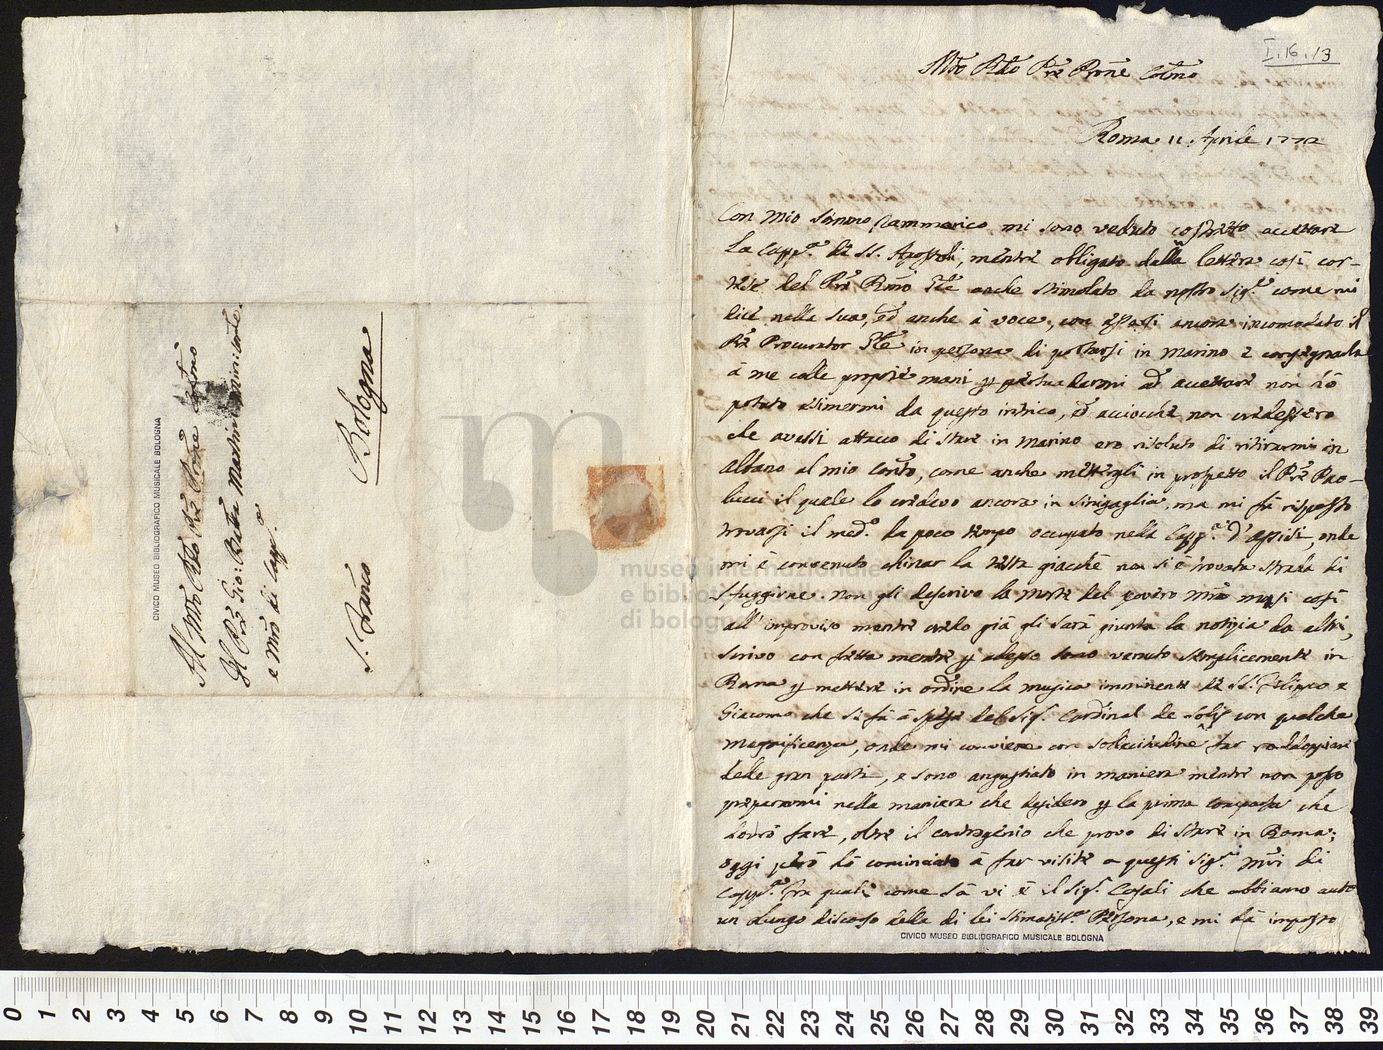 Al Mto Rdo Pre Prone Colmo
Il Pre Gio: Batta Martini Min: Conle
e Mro di Capp.a
S. Franco Bologna
CIVICO MUSEO BIBLIOGRAFICO MUSICALE BOLOGNA
museo internazionale
e biblioteca
di bologna
I.16.13
Mto Rdo Pre Prone Colmo
Roma 11. Aprile 1772
Con mio sommo rammarico mi sono veduto costretto accettare
la Capp.a de SS. Apostoli, mentre obligato dalla lettera così cor-
tese del Pre Rmo Gle anche stimolato da nostro Sig.re come mi
dice nella sua, ed anche à voce, con essersi ancora incomodato il
Pre Procurator Gle in persona di portarsi in Marino e consegnarla
à me colle proprie mani p persuadermi ad accettare non hò
potuto esimermi da questo intrico, ed acciochè non credessero
che avessi attacco di stare in Marino ero risoluto di ritirarmi in
Albano al mio Conto, come anche mettergli in prospetto il Pre Pao-
lucci il quale lo credevo ancora in Sinigaglia, ma mi fù risposto
trovarsi il med.o da poco tempo occupato nella Capp.a d'Assisi, onde
mi è convenuto chinar la testa giacchè non si è trovata strada di
sfuggirne. Non gli descrivo la morte del povero Mro Masi così
all'improviso mentre credo già gli sarà giunta la notizia da altri,
scrivo con fretta mentre p adesso sono venuto semplicemente in
Roma p mettere in ordine la musica imminente de SS. Filippo e
Giacomo che si fà à spese del Sig.r Cardinal de Solis con qualche
magnificenza, onde mi conviene con sollecitudine far raddoppiare
delle gran parti, e sono angustiato in maniera mentre non posso
prepararmi nella maniera che desidero p la prima comparsa che
dovrò fare, oltre il contragenio che provo di stare in Roma;
oggi però hò cominciato à far visite a questi Sig.ri Mri di
Capp.a fra quali come sà vi è il Sig.r Casali che abbiamo auto
un lungo discorso della di lei stimatiss.a Persona, e mi hà imposto
CIVICO MUSEO BIBLIOGRAFICO MUSICALE BOLOGNA
0 1 2 3 4 5 6 7 8 9 10 11 12 13 14 15 16 17 18 19 20 21 22 23 24 25 26 27 28 29 30 31 32 33 34 35 36 37 38 39